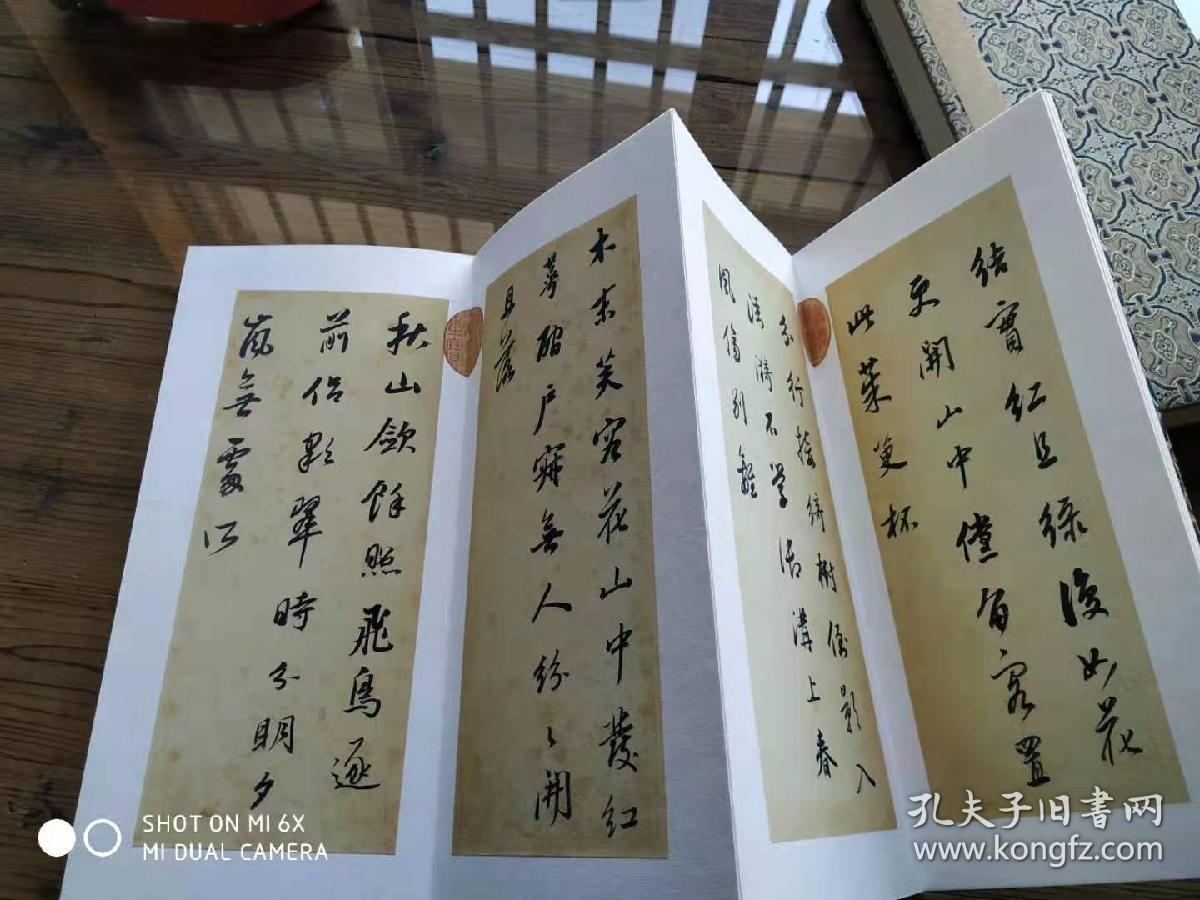 結實紅且綠復如花
更開山中儻留客置
此茱萸杯
分行接綺樹倒影入
清漪不學御溝上春
風傷別離
木末芙蓉花山中發紅
萼磵戶寂無人紛〻開
且落
秋山斂餘照飛鳥逐
前侶彩翠時分明夕
嵐無處所
SHOT ON MI 6X
MI DUAL CAMERA
孔夫子旧书网
www.kongfz.com